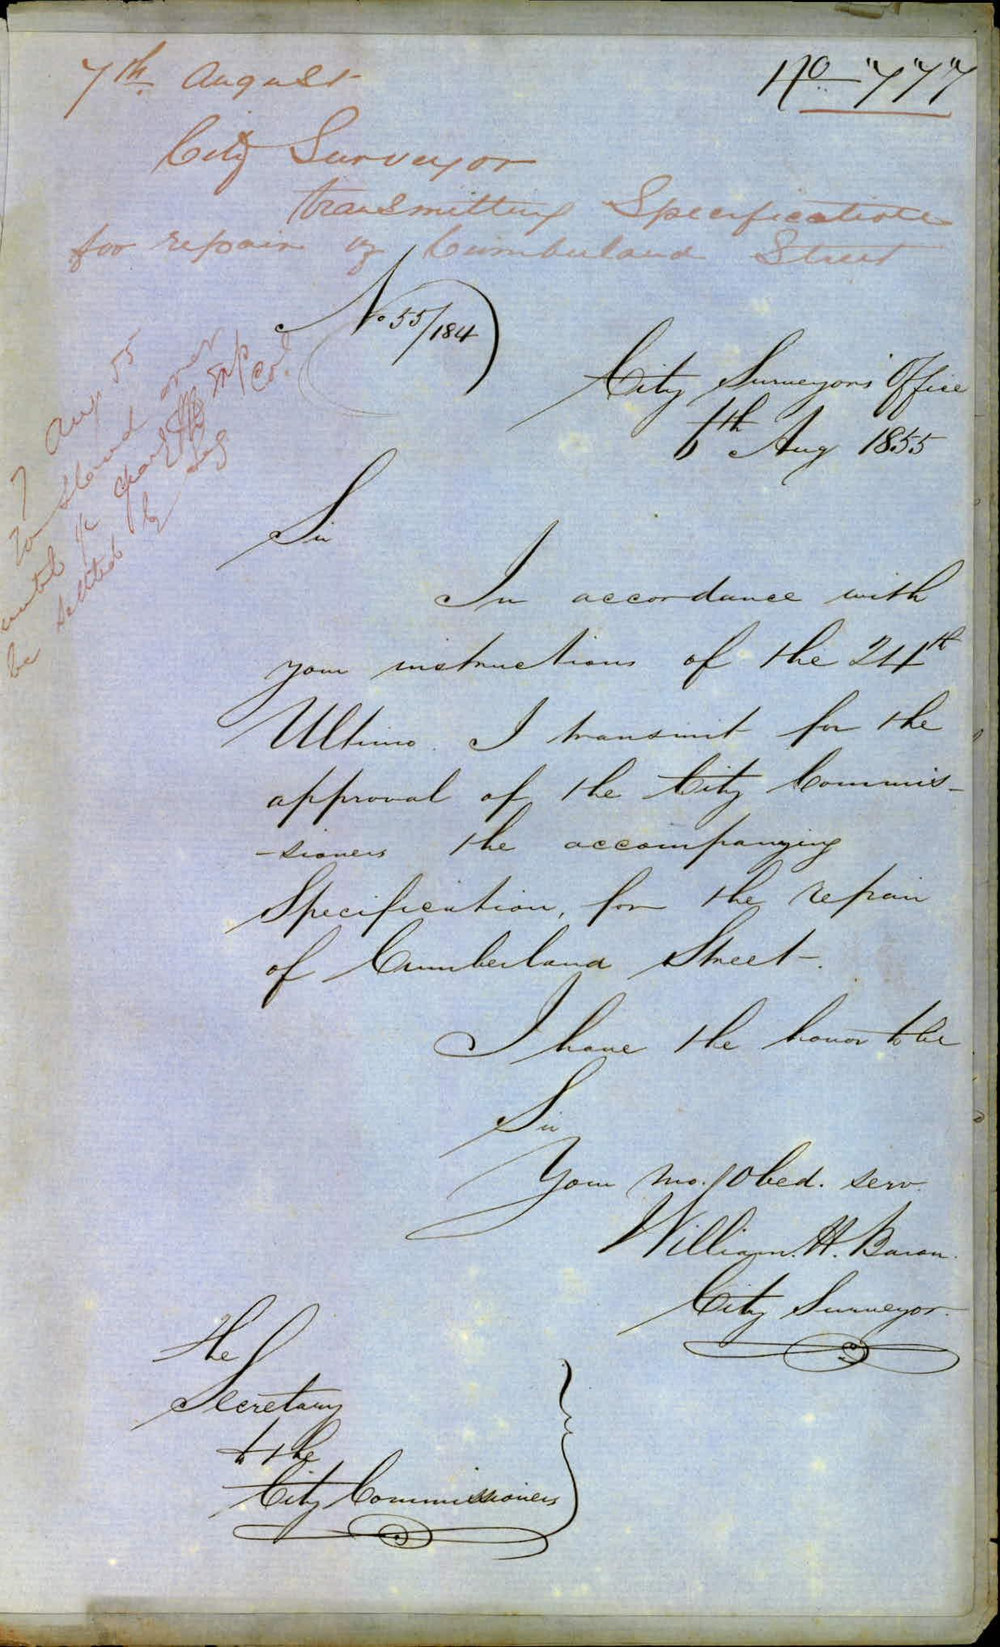 7th August
No "777"
City Surveyor
transmitting Specification
for repair of Cumberland Street
No 55/184
7 Aug 55
to stand over
until
be settled by
City Surveyors Office
6th Aug 1855
Sir
In accordance with
your instructions of the 24th
Ultimo I transmit for the
approval of the City Commis-
-sioners the accompanying
Specification, for the repair
of Cumberland Street.
I have the honor to be
Sir
Your mo. Obed. serv.
William. H. Baron.
City Surveyor.
The
Secretary
to the
City Commissioners